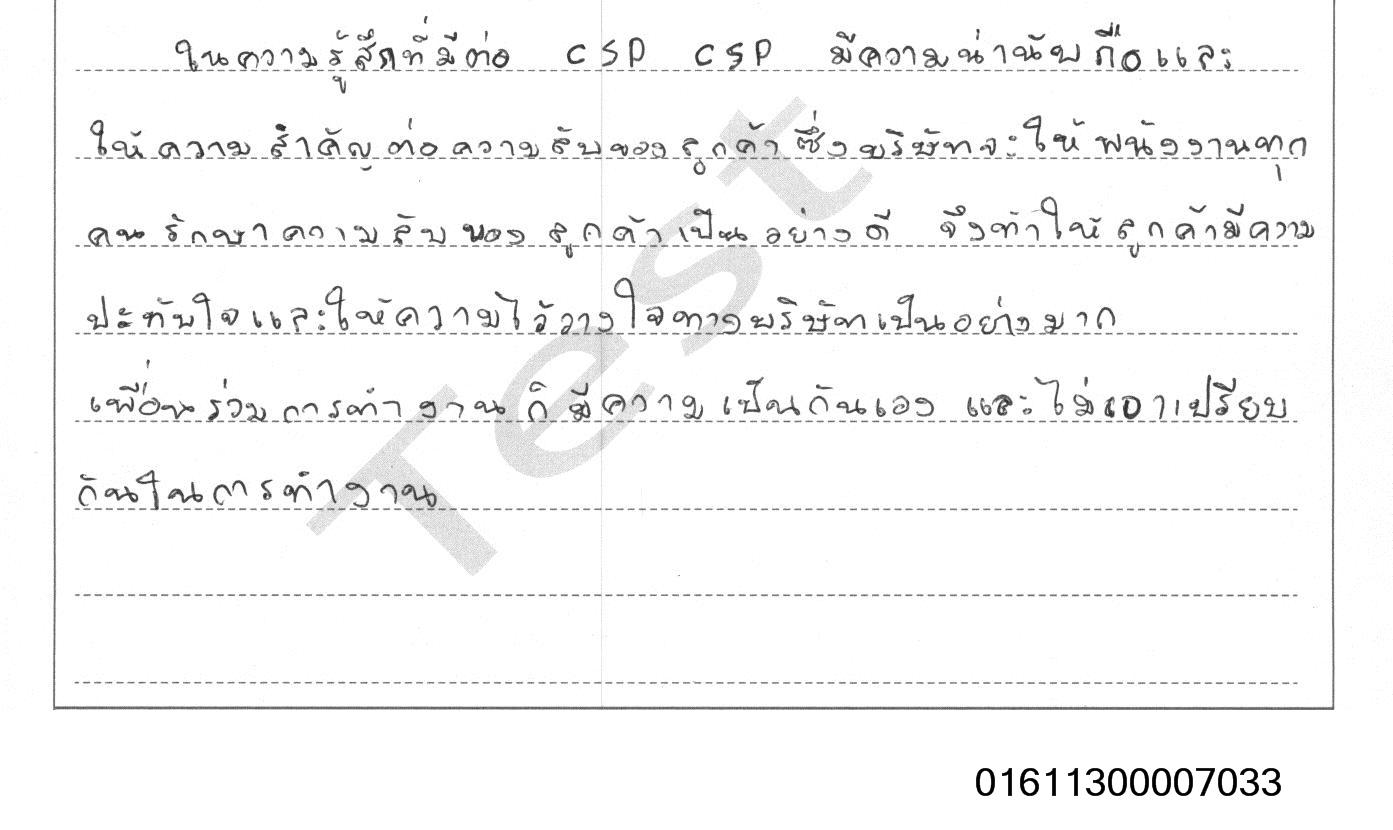 ในความรู้สึกที่มีต่อ CSP CSP มีความน่านับถือและ
ให้ความสำคัญต่อความลับของลูกค้า ซึ่งบริษัทจะให้พนังงานทุก
คนรักษาความลับของลูกค้าเป็นอย่างดี จึงทำให้ลูกค้ามีความ
ประทับใจและให้ความไว้วางใจทางบริษัทเป็นอย่างมาก
เพื่อนร่วมการทำงานก็มีความเป็นกันเอง และไม่เอาเปรียบ
กันในการทำงาน
Test
01611300007033